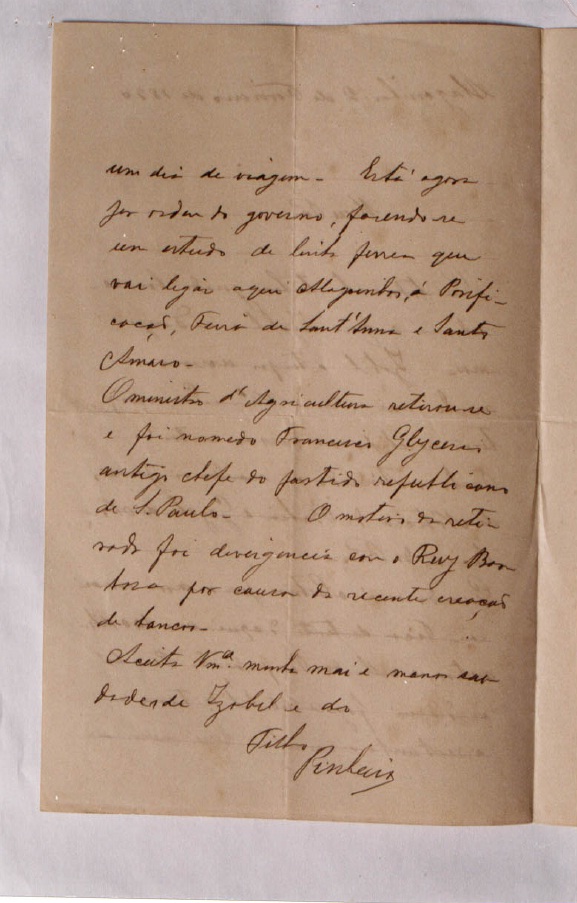 um dia de viagem - Está agora
por ordem do governo, fazendo-se
um estudo de linha ferrea que
vai ligar aqui Alagoinhas, á Purifi-
cação, Feira de Sant'Anna e Santo
Amaro -
O ministro d' Agricultura retirou-se
e foi nomedo Francisco Glycerio
antigo chefe do partido republicano
de S. Paulo - O motivo da reti-
rada foi divergencia com o Ruy Bar
bosa por causa da recente creação
de bancos -
Aceite Vmª. minha mai e manos sau
dades de Izabel e do
Filho
Pinheiro